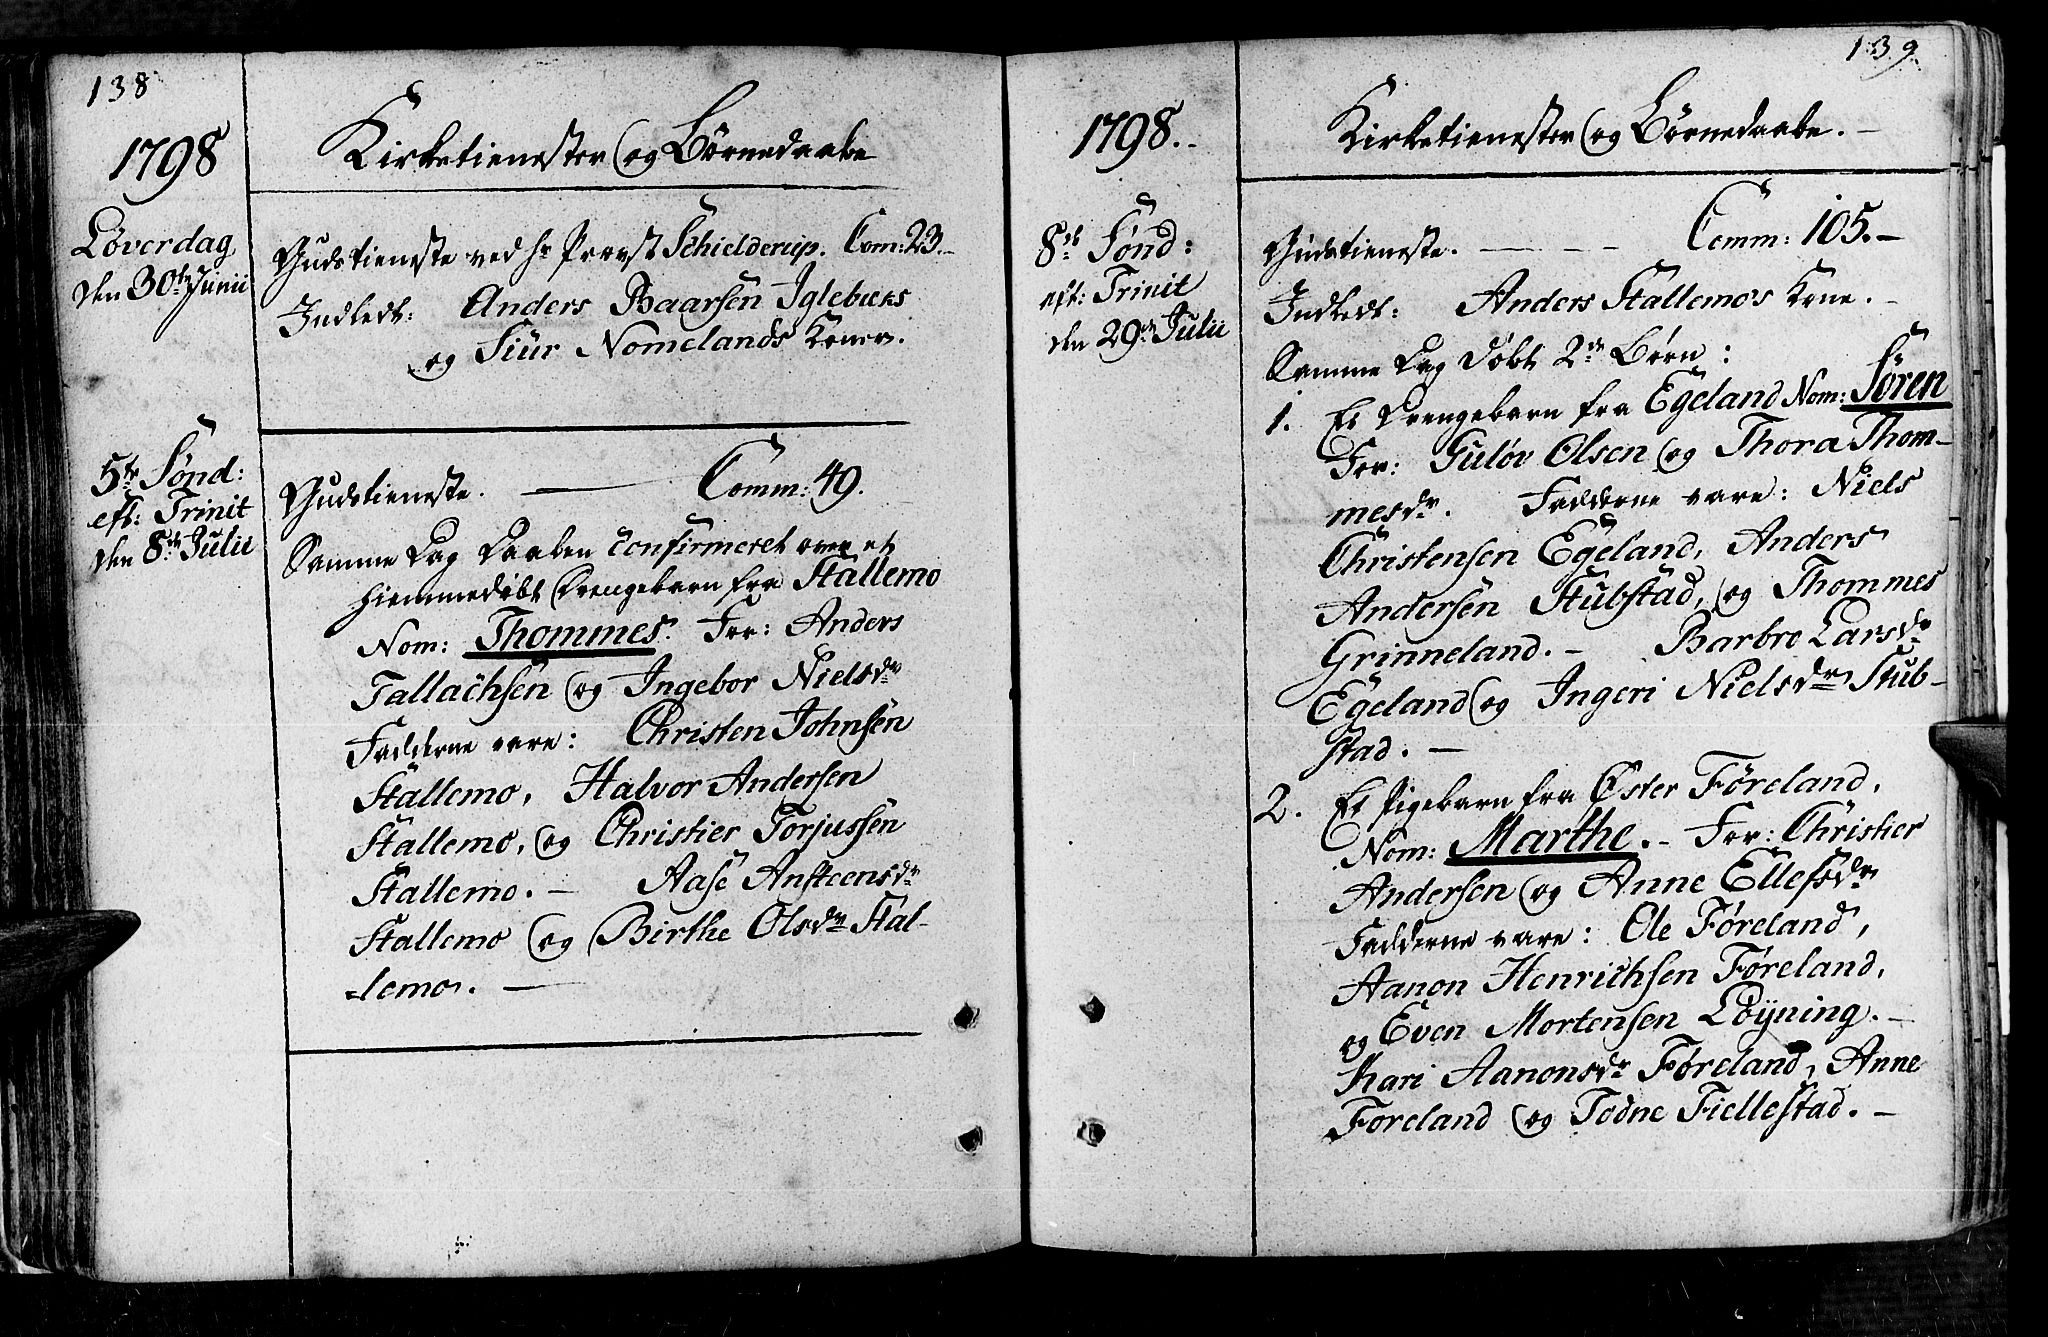 138
1798
Kirketienester og Børnedaabe
Løverdag
den 30te Junii
Gudstieneste ved Hr Provst Schielderup. Com: 23.-
Indledt: Anders Baarsen Iglebæks
og Siur Nomelands Koner.
5te Sønd:
eft: Trinit
den 8de Julii
Gudstieneste. — Comm: 49.
Samme Dag Daaben confirmeret over et
hiemmedøbt Drengebarn fra Stallemo
Nom: Thommes. For: Anders
Tallachsen og Ingebor Nielsdr
Fadderne vare: Christen Johnsen
Stallemo, Halvor Andersen
Stallemo, og Christier Torjussen
Stallemo. - Aase Ansteensdr
Stallemo og Birthe Olsdr Stal-
-lemo. —
139
1798.-
Kirketienester og Børnedaabe. -
8de Sønd:
eft: Trinit
den 29de Julii
Gudstieneste. — - - Comm: 105.-
Indledt: Anders Stallemos Kone. -
Samme Dag døbt 2de Børn:
1. Et Drengebarn fra Egeland Nom: Søren
For: Guløv Olsen og Thora Thom-
mesdr. Fadderne vare: Niels
Christensen Egeland, Anders
Andersen Stubstad, og Thommes
Grinneland. - Barbro Larsdr
Egeland og Ingeri Nielsdr Stub-
stad. -
2. Et Pigebarn fra Øster Føreland,
Nom: Marthe. - For: Christier
Andersen og Anne Ellefsdr
Fadderne vare: Ole Føreland,
Aanon Henrichsen Føreland,
og Even Mortensen Løyning. -
Kari Aanonsdr Føreland, Anne
Føreland og Todne Fiellestad. -